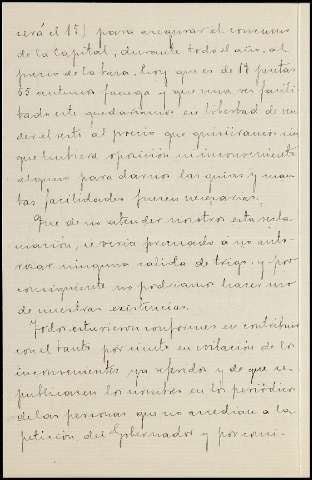 cerá el 15) para asegurar el consumo
de la Capital, durante todo el año, al
precio de la tasa, hoy que es de 18 pesetas
55 centimos fanega y que una vez facili
tado este quedariamos en libertad de ven
der el resto al precio que quisieramos sin
que hubiera oposición ni inconveniente
alguno para darnos las guias y cuan
tas facilidades fueren necesarias.
Que de no atender nosotros esta recla
mación, se veria precisado á no auto-
rizar ninguna salida de trigo, y por
consiguiente no podriamos hacer uso
de nuestras existencias.
Todos estuvieron conformes en contribuir
con el tanto por ciento en evitación de los
inconvenientes ya referidos y de que se
publicasen los nombres en los periódicos
de las personas que no accedian a la
petición del Gobernador y por consi-